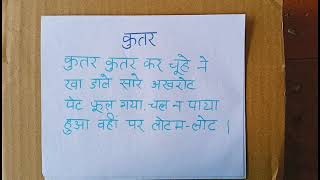 कुतर
कुतर कुतर कर चूहे ने
खा डाले सारे अखरोट
पेट फूल गया. चल न पाया
हुआ वहीं पर लोटम-लोट ।